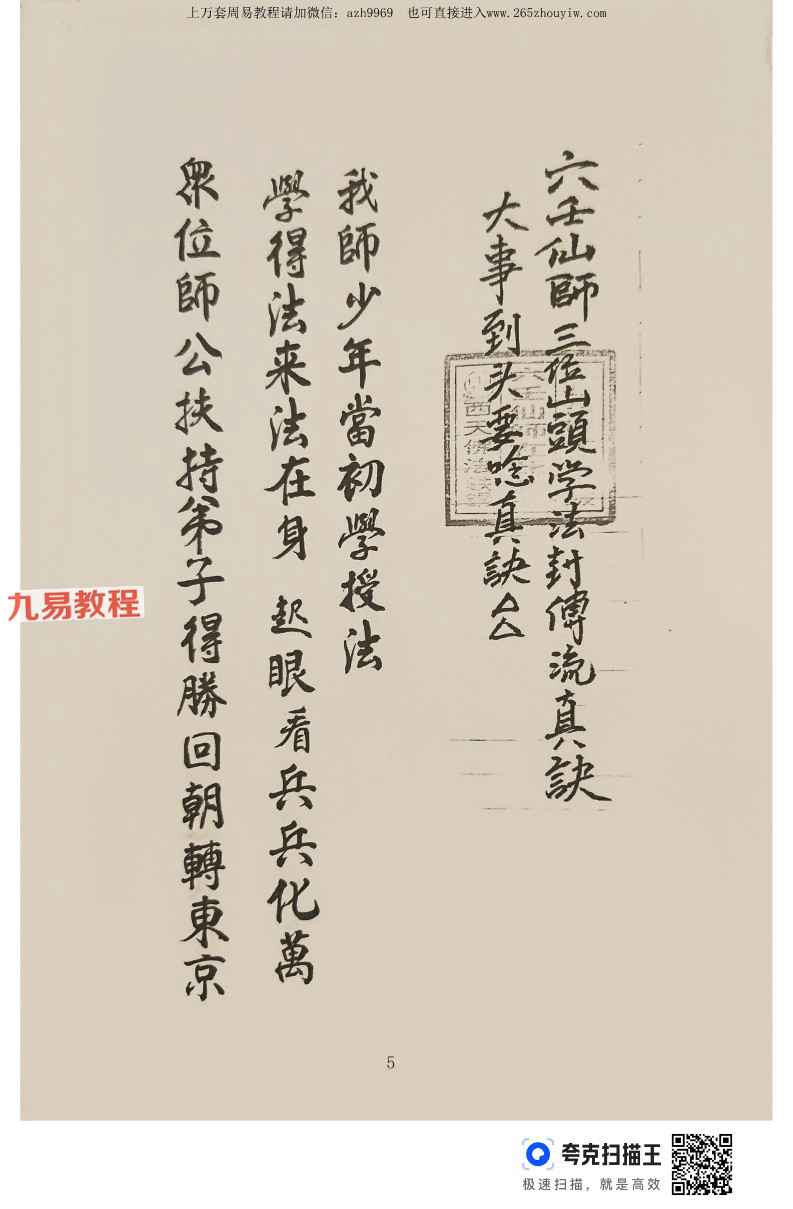 上万套周易教程请加微信：azh9969　也可直接进入www.265zhouyiw.com
六壬仙師三位山頭学法封傳流真訣
大事到头要唸真訣△△
我師少年當初學授法
學得法来法在身 起眼看兵兵化萬
衆位師公扶持弟子得勝回朝轉東京
九易教程
5
夸克扫描王
极速扫描，就是高效